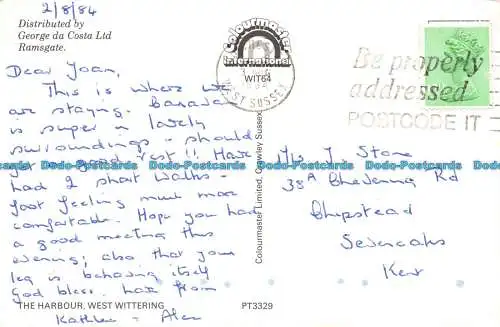 2/8/84
Distributed by
George da Costa Ltd
Ramsgate.
Dear Joan,
This is where we
are staying. Caravan
is super in lovely
surroundings - should
get a good rest!! Have
had 2 short walks -
foot feeling much more
comfortable. Hope you had
a good meeting this
evening; also that your
leg is behaving itself
God bless. love from
Kathleen - Alan
THE HARBOUR, WEST WITTERING
PT3329
Colourmaster Limited, Crawley Sussex
Colourmaster
International
WIT64
WEST SUSSEX
Be properly
addressed
POSTCODE IT
Mrs J Stone
38A Chevening Rd
Chipstead
Sevenoaks
Kent
Dodo-Postcards Dodo-Postcards Dodo-Postcards Dodo-Postcards Dodo-Postcards